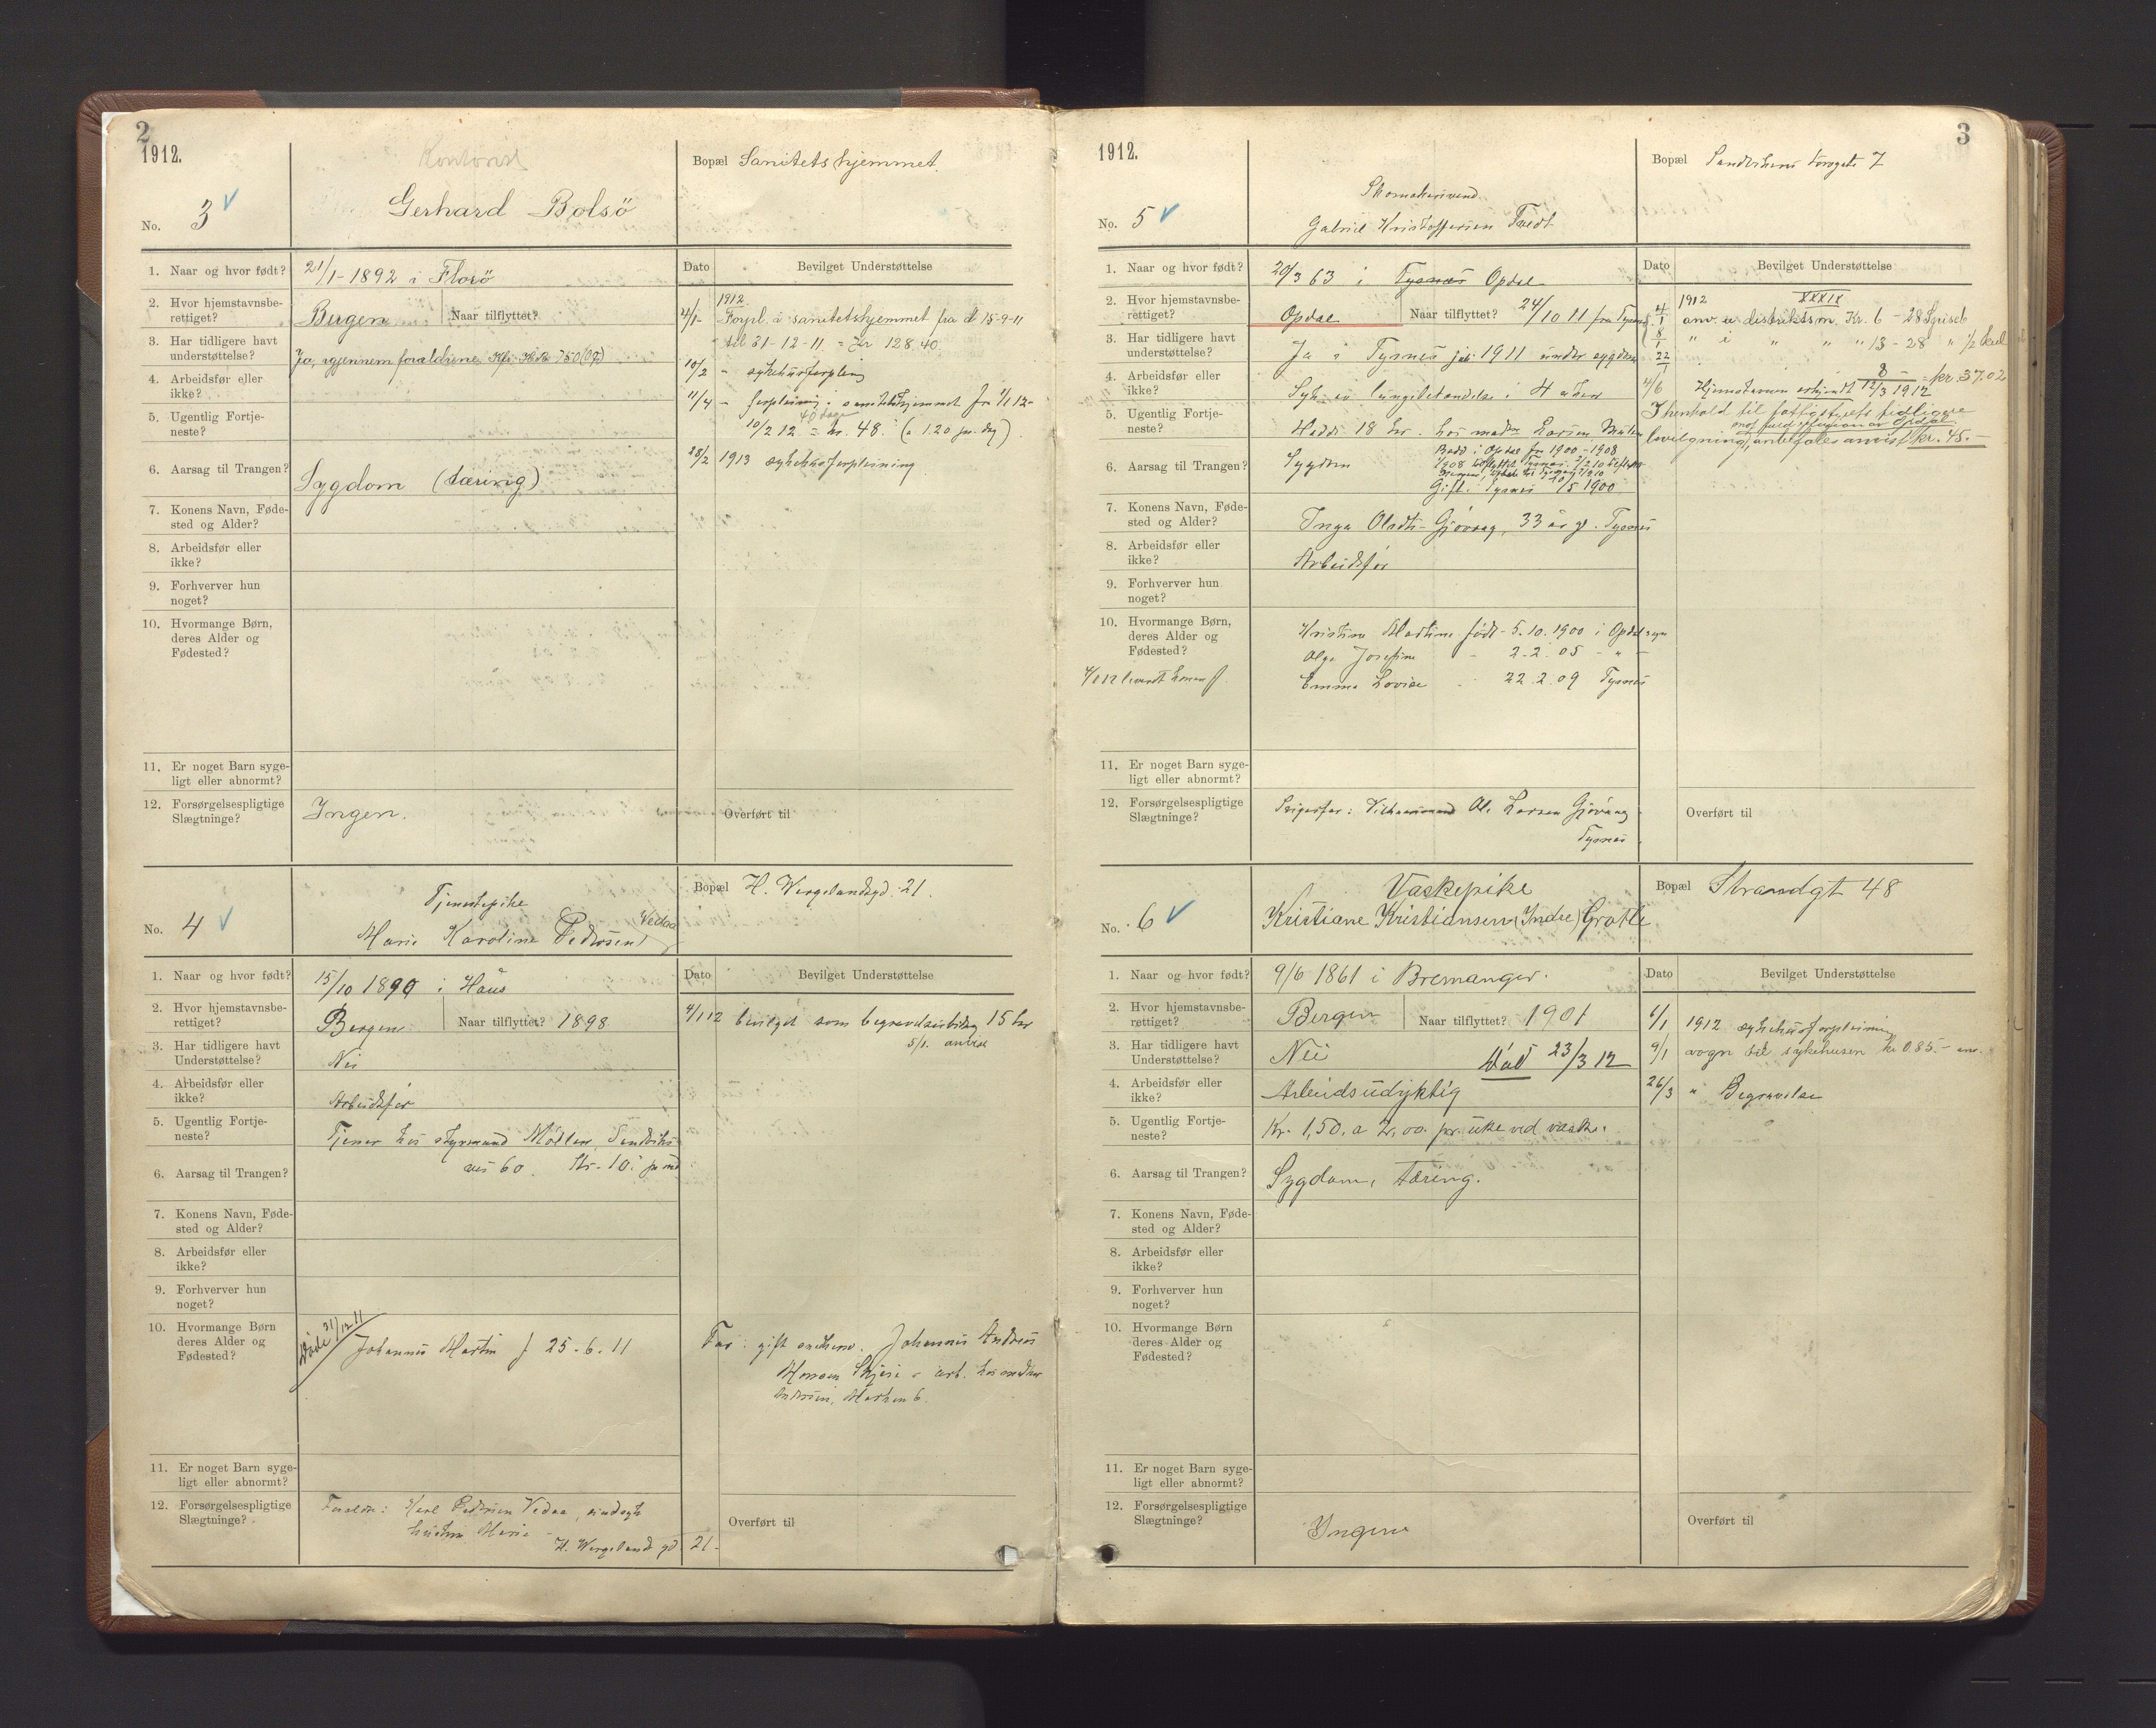 2
1912.
No. 3
Kontorist
Gerhard Bolsö
Bopæl Sanitetshjemmet.
1. Naar og hvor født? 21/1-1892 i Florö
2. Hvor hjemstavnsberettiget? Bergen Naar tilflyttet?
3. Har tidligere havt understøttelse? Ja, igjennem forældrene
4. Arbeidsfør eller ikke?
5. Ugentlig Fortjeneste?
6. Aarsag til Trangen? Sygdom (tæring)
7. Konens Navn, Fødested og Alder?
8. Arbeidsfør eller ikke?
9. Forhverver hun noget?
10. Hvormange Børn, deres Alder og Fødested?
11. Er noget Barn sygeligt eller abnormt?
12. Forsørgelsespligtige Slægtninge? Ingen.
Dato Bevilget Understøttelse
1912
4/1- Forpl. i sanitetshjemmet fra d 15-9-11
til 31-12-11 = Kr 128.40
10/2 - sykehusforpleining
11/4 - forpleining i sanitetshjemmet fra 1/1 12-
40 dage
10/2 12 = kr. 48. (a 1.20 pr. dag)
28/2 1913 sykehusforpleining
Overført til
No. 4
Tjenestepike
Marie Karoline Pedersen Vedaa
Bopæl H. Wergelandsgd. 21.
1. Naar og hvor født? 15/10 1890 i Haus
2. Hvor hjemstavnsberettiget? Bergen Naar tilflyttet? 1898
3. Har tidligere havt Understøttelse? Nei
4. Arbeidsfør eller ikke? Arbeidsfør
5. Ugentlig Fortjeneste? Tjener hos styrmand Möller, Sandviks
vei 60. Kr. 10. pr md
6. Aarsag til Trangen?
7. Konens Navn, Fødested og Alder?
8. Arbeidsfør eller ikke?
9. Forhverver hun noget?
10. Hvormange Børn deres Alder og Fødested? Döde 21/12 11 Johannes Martin f 25-6-11
11. Er noget Barn sygeligt eller abnormt?
12. Forsørgelsespligtige Slægtninge? Forældre: Karl Pedersen Vedaa,
hustru Marie
H. Wergelands gd 21-
Dato Bevilget Understøttelse
4/1 12 bevilget som begravelsesbidrag 15 kr
5/1. anvist
Far: gift Johannes Andreas
Monsen Skjeie arb. hos
Andersen, Marken 6.
Overført til
3
1912.
No. 5
Skomakersvend
Gabriel Kristoffersen Tvedt
Bopæl Sandvikens torvgate 7
1. Naar og hvor født? 20/3 63 i Tysnes Opdal
2. Hvor hjemstavnsberettiget? Opdal Naar tilflyttet? 24/10 11 fra Tysnes
3. Har tidligere havt understøttelse? Ja i Tysnes juli 1911 under sygdom
4. Arbeidsfør eller ikke? Syk av lungebetændelse i
5. Ugentlig Fortjeneste? Hadde 18 kr. hos Larsen,
6. Aarsag til Trangen? Sygdom
Bodd i Opdal fra 1900-1908
Gift i Tysnes 10/5 1900
7. Konens Navn, Fødested og Alder? Inga Olsdtr Gjövaag, 33 år gl. Tysnes
8. Arbeidsfør eller ikke? Arbeidsfør
9. Forhverver hun noget?
10. Hvormange Børn, deres Alder og Fødested? Kristine Martine född 5.10.1900 i Opdal sgn
Olga Josefine - 2.2.05 - " -
Emma Lovise - 22.2.09 Tysnes
11. Er noget Barn sygeligt eller abnormt?
12. Forsørgelsespligtige Slægtninge? Svigerfar: Ole Larsen Gjövaag
Tysnes.
Dato Bevilget Understøttelse
1912 XXXIX
4/1 anv. i distriktsm. Kr. 6 - 28 Spiseb
8/1 " i " " " 13 - 28 " 1/2
22/1 8 - = kr. 37.02
4/6 Hjemstavnen erkjendt 12/3 1912
I henhold til fattigstyrets tidligere
mot fuld refusion av Opdal
bevilgning anbefales anvist kr. 45.-
Overført til
No. 6
Vaskepike
Kristiane Kristiansen (Indre) Grotle
Bopæl Strandgt 48
1. Naar og hvor født? 9/6 1861 i Bremanger.
2. Hvor hjemstavnsberettiget? Bergen Naar tilflyttet? 1901
3. Har tidligere havt Understøttelse? Nei Död 23/3 12
4. Arbeidsfør eller ikke? Arbeidsudyktig
5. Ugentlig Fortjeneste? Kr. 1,50, a 2,00. pr. uke ved vask.
6. Aarsag til Trangen? Sygdom, tæring.
7. Konens Navn, Fødested og Alder?
8. Arbeidsfør eller ikke?
9. Forhverver hun noget?
10. Hvormange Børn deres Alder og Fødested?
11. Er noget Barn sygeligt eller abnormt?
12. Forsørgelsespligtige Slægtninge? Ingen
Dato Bevilget Understøttelse
6/1 1912 sykehusforpleining
9/1 vogn til sykehusen kr 0.85.- anv.
26/3 " Begravelse
Overført til